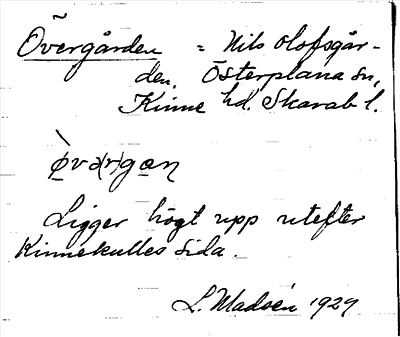 Övergården = Nils Olofsgår-
den, Österplana sn,
Kinne hd. Skarab l.
Ligger högt upp utefter
Kinnekulles sida.
L. Madsén 1929